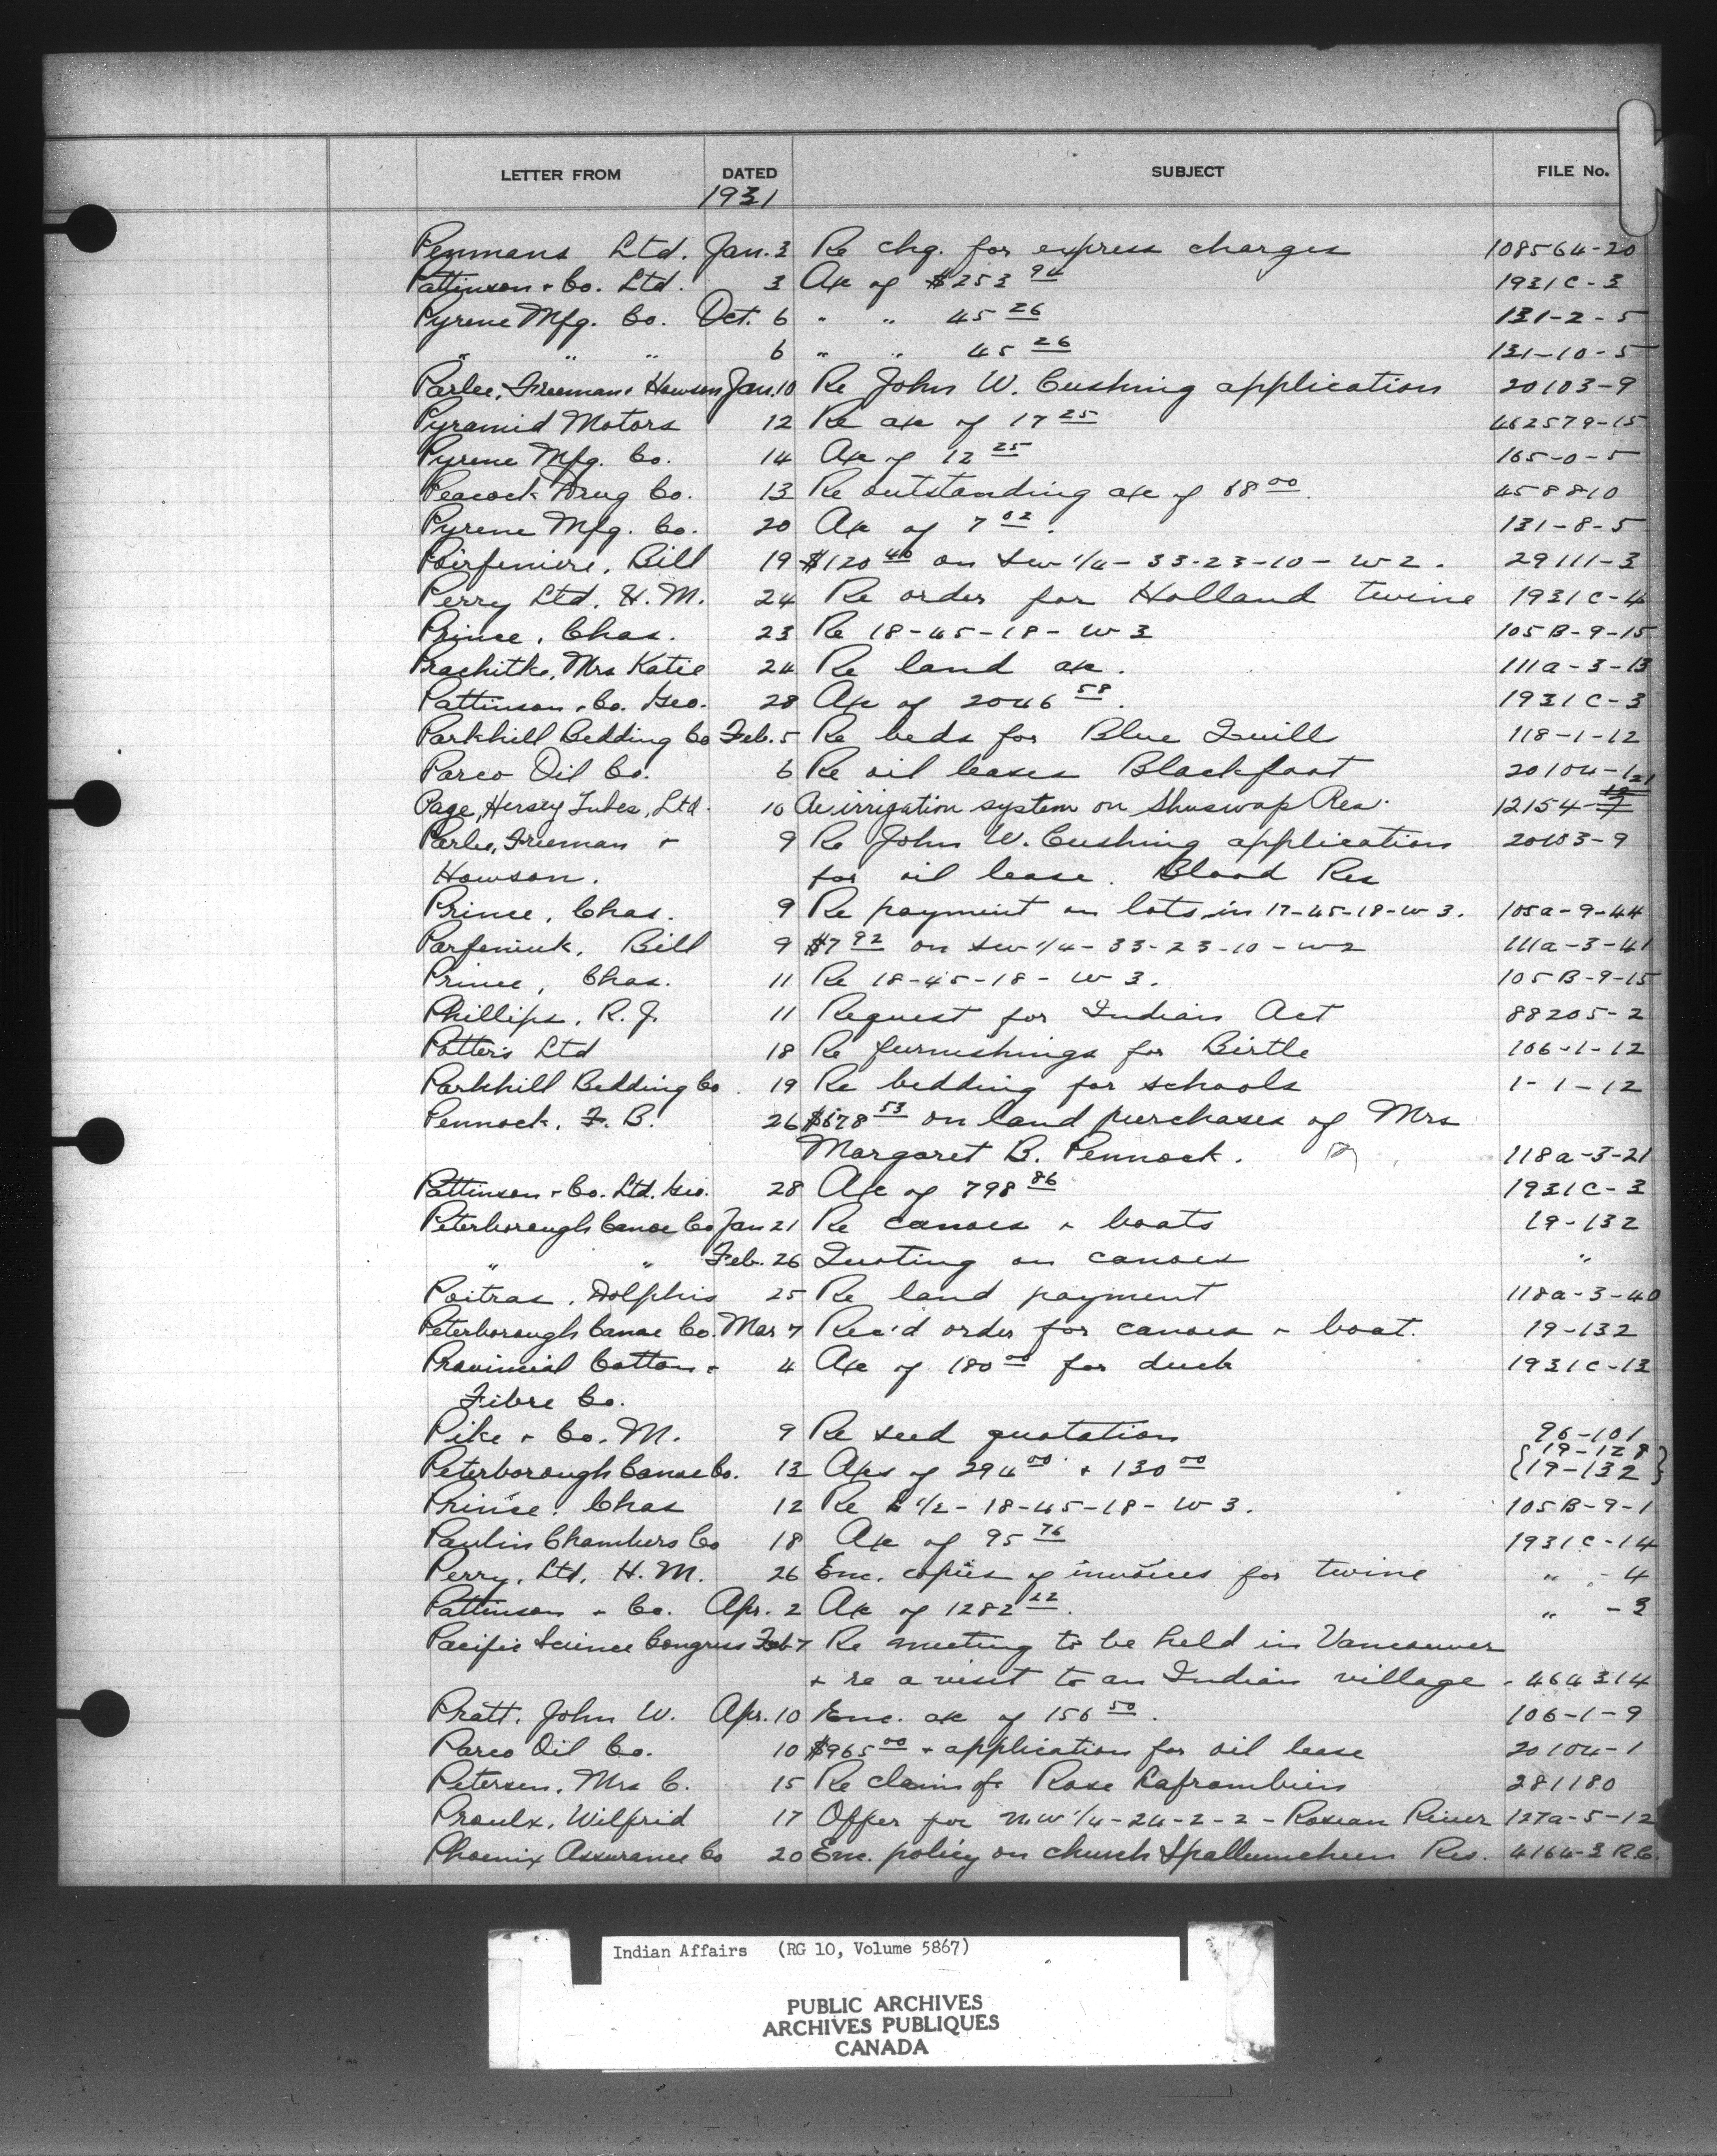 LETTER FROM DATED SUBJECT FILE No.
1931
Penmans Ltd. Jan. 3 Re chg. for express charges 108564-20
Pattinson + Co. Ltd. 3 A/c of $253 94 1931C-3
Pyrene Mfg. Co. Oct. 6 " " 45 26 131-2-5
" " " 6 " " 45 26 131-10-5
Parlee, Freeman + Howson Jan. 10 Re John W. Cushing application 20103-9
Pyramid Motors 12 Re a/c of 17 25 462579-15
Pyrene Mfg. Co. 14 A/c of 12 25 165-0-5
Peacock Drug Co. 13 Re outstanding a/c of 88 00. 458810
Pyrene Mfg. Co. 20 A/c of 7 02. 131-8-5
Bill 19 $120 40 on SW 1/4-33-23-10-W2. 29111-3
Perry Ltd. H.M. 24 Re order for Holland twine 1931C-4
Prince, Chas. 23 Re 18-45-18-W3 105B-9-15
Mrs Katie 24 Re land a/c. 111a-3-13
Pattinson + Co. Geo. 28 A/c of 2046 58. 1931C-3
Parkhill Bedding Co Feb. 5 Re beds for Blue Quill 118-1-12
Parco Oil Co. 6 Re oil leases Blackfoot 20104-1
Page, Hersey Tubes, Ltd. 10 Re irrigation system on Shuswap Res. 12154-
Parlee, Freeman + 9 Re John W. Cushing application 20103-9
Howson. for oil lease. Blood Res
Prince, Chas. 9 Re payment on lots in 17-45-18-W3. 105a-9-44
Parfeniuk, Bill 9 $7 92 on SW 1/4-33-23-10-W2 111a-3-41
Prince, Chas. 11 Re 18-45-18-W3. 105B-9-15
Phillips, R.J. 11 Request for Indian Act 88205-2
Potters Ltd 18 Re furnishings for Birtle 106-1-12
Parkhill Bedding Co. 19 Re bedding for schools 1-1-12
Pennock, F. B. 26 $678 53 on land purchases of Mrs
Margaret B. Pennock. 118a-3-21
Pattinson + Co. Ltd. Geo. 28 A/c of 798 86 1931C-3
Peterborough Canoe Co Jan 21 Re canoes + boats 19-132
" " Feb. 26 Quoting on canoes "
Poitras, Dolphis 25 Re land payment 118a-3-40
Peterborough Canoe Co. Mar 7 Rec'd order for canoes + boat. 19-132
Provincial Cotton + 4 A/c of 180 00 for duck 1931C-13
Fibre Co.
Pike + Co. M. 9 Re seed quotation 96-101
{19-128
Peterborough Canoe Co. 13 A/cs of 294 00 + 130 00 {19-132}
Prince, Chas 12 Re E 1/2-18-45-18-W3. 105B-9-1
Paulin Chambers Co 18 A/c of 95 76 1931C-14
Perry, Ltd. H.M. 26 Enc. copies of invoices for twine " -4
Pattinson + Co. Apr. 2 A/c of 1282 22. " -3
Pacific Science Congress Feb 7 Re meeting to be held in Vancouver
+ re a visit to an Indian village - 464314
Pratt, John W. Apr. 10 Enc. a/c of 156 50. 106-1-9
Parco Oil Co. 10 $965 00 + application for oil lease 20104-1
Petersen, Mrs C. 15 Re claim of Rose 281180
Proulx, Wilfrid 17 Offer for NW 1/4-24-2-2-Roseau River 127a-5-12
Phoenix Assurance Co 20 Enc. policy on church Spallumcheen Res. 4164-3 B.C.
Indian Affairs (RG 10, Volume 5867)
PUBLIC ARCHIVES
ARCHIVES PUBLIQUES
CANADA